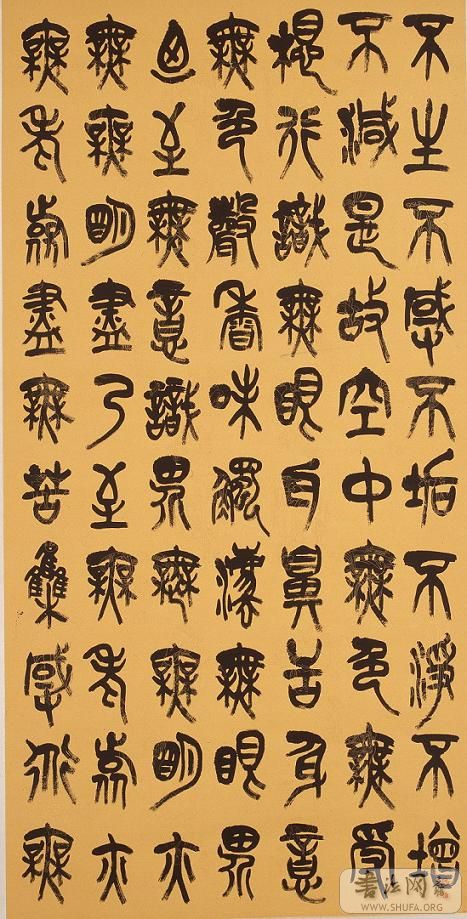 不生不滅不垢不淨不增
不減是故空中無色無受
想行識無眼耳鼻舌身意
無色聲香味觸法無眼界
乃至無意識界無無明亦
無無明盡乃至無老死亦
無老死盡無苦集滅道無
書法网
WWW.SHUFA.ORG